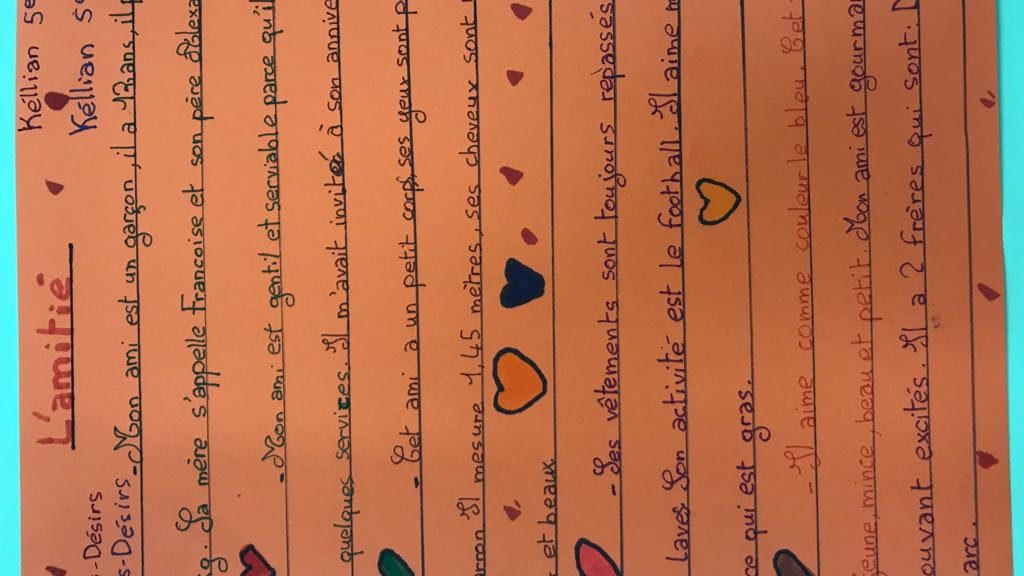 Kéllian 5e
Kéllian 5e
L'amitié
-Désirs
s-Désirs -Mon ami est un garçon, il a 12 ans, il p
g. Sa mère s'appelle Francoise et son père Alexa
-Mon ami est gentil et serviable parce qu'il
quelques services. Il m'avait invité à son annive
- Cet ami a un petit corps, ses yeux sont p
arron Il mesure 1,45 mètres, ses cheveux sont
et beaux
- Ses vêtements sont toujours repassés
laves. Son activité est le foothall. Il aime m
ce qui est gras.
- Il aime comme couleur le bleu. Cet
jeune, mince, beau et petit. Mon ami est gourman
ouvant excités. Il a 2 frères qui sont: D
arc.